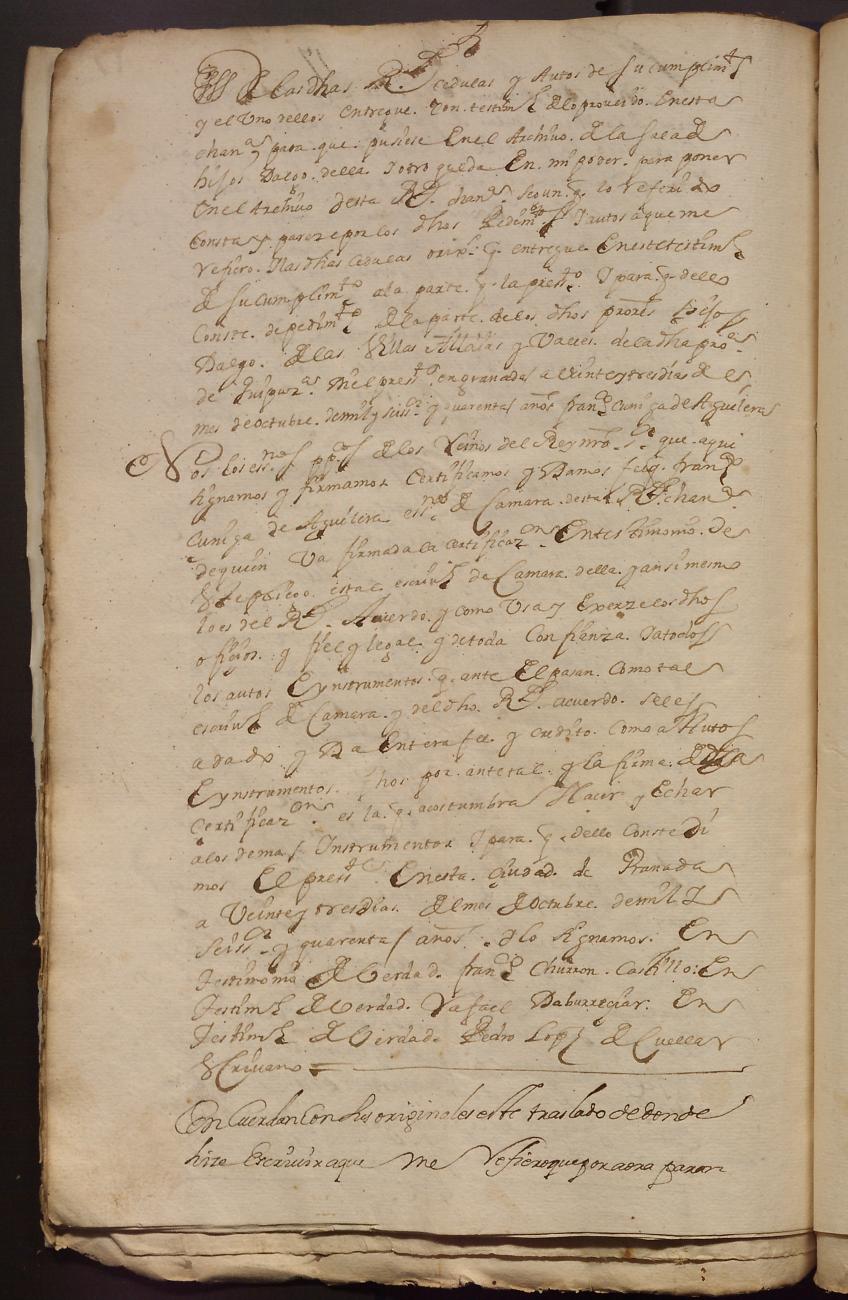 de las dhas Rs cedulas y Autos de su cumplimto
y el uno dellos entregue con testimo de lo proueido en esta
chana para que pusiese En el Archiuo de la sala de
hijos Dalgo della y otro queda En mi poder para poner
En el Archiuo desta Rl chana segun q lo referido
Consta y pareze por los dhos Pedimtos y autos a que me
refiero Y las dhas cedulas orixs q entregue En este testimo
de su cumplimto a la parte q la presto y para q dello
Conste de pedimto de la parte de los dhos prores hijos
Dalgo de las Villas Alcaldias y Valles de la dha proa
de Guipuzca di el preste en granada a veinte y tres dias del
mes de octubre de mil y seiscos y quarenta años franco Cuniga de Aguilera
Nos los essnos ppcos de los Reinos del Rey nro sr que aqui
signamos y firmamos Certificamos y Damos fe q franco
Cuniga de Aguilera essno de Camara desta Rl chana
de quien va firmada la certificazon En testimonio de
este pliego es tal escriuo de Camara della y ansimesmo
lo es del Rl Acuerdo y como usa y Exerze los dhos
oficios y fiel y legal y de toda Confianza y a todos
los autos E ynstrumentos q ante El pasan Como tal
escriuo de Camara y del dho Rl acuerdo se les
a dado y Da Entera fee y credito Como a Autos
E ynstrumentos fhos por ante tal y la firma de la
Certificazon es la q acostumbra Hacer y Echar
a los demas Instrumentos y para q dello Conste di
mos El preste En esta Ciudad de Granada
a Veinte y tres dias del mes de Octubre de mil y
seiscos y quarenta años y lo signamos En
Testimonio de Verdad franco Churron Castillo En
Testimo de Verdad Rafael Daburregiar En
Testimo de Verdad Pedro Lopz de Cuellar
escriuano
Concuerdan Con sus originales este traslado de donde
hize Escriuir a que me refiero que por aora paran